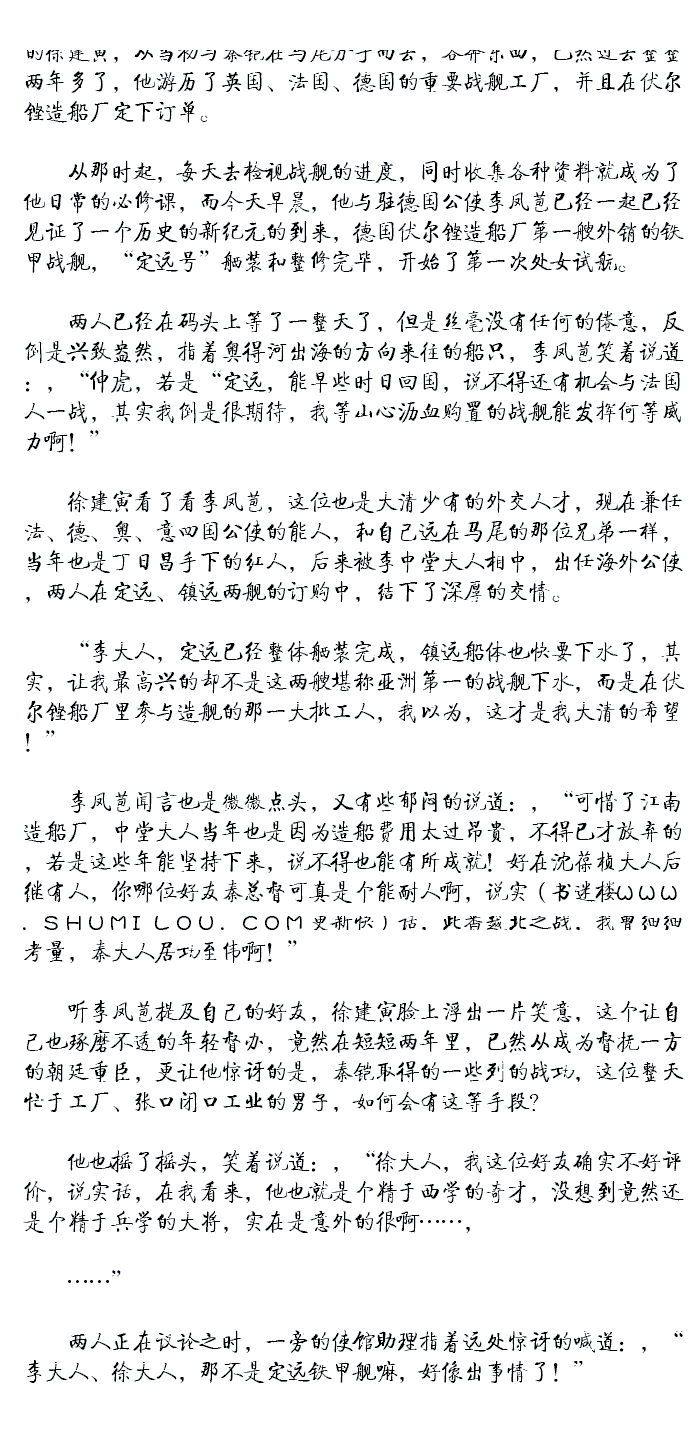 的徐建寅，从当初与秦铠在马尾分手而去，各奔东西，已然过去整整
两年多了，他游历了英国、法国、德国的重要战舰工厂，并且在伏尔
铿造船厂定下订单。
从那时起，每天去检视战舰的进度，同时收集各种资料就成为了
他日常的必修课，而今天早晨，他与驻德国公使李凤苞已经一起已经
见证了一个历史的新纪元的到来，德国伏尔铿造船厂第一艘外销的铁
甲战舰，“定远号”舾装和整修完毕，开始了第一次处女试航。
两人已经在码头上等了一整天了，但是丝毫没有任何的倦意，反
倒是兴致盎然，指着奥得河出海的方向来往的船只，李凤苞笑着说道
：，“仲虎，若是“定远，能早些时日回国，说不得还有机会与法国
人一战，其实我倒是很期待，我等山心沥血购置的战舰能发挥何等威
力啊！”
徐建寅看了看李凤苞，这位也是大清少有的外交人才，现在兼任
法、德、奥、意四国公使的能人，和自己远在马尾的那位兄弟一样，
当年也是丁日昌手下的红人，后来被李中堂大人相中，出任海外公使
，两人在定远、镇远两舰的订购中，结下了深厚的交情。
“李大人，定远已经整体舾装完成，镇远船体也快要下水了，其
实，让我最高兴的却不是这两艘堪称亚洲第一的战舰下水，而是在伏
尔铿船厂里参与造舰的那一大批工人，我以为，这才是我大清的希望
！”
李凤苞闻言也是微微点头，又有些郁闷的说道：，“可惜了江南
造船厂，中堂大人当年也是因为造船费用太过昂贵，不得已才放弃的
，若是这些年能坚持下来，说不得也能有所成就！好在沈葆桢大人后
继有人，你哪位好友秦总督可真是个能耐人啊，说实（书迷楼ＷＷＷ
．ＳＨＵＭＩＬＯＵ．ＣＯＭ更新快）话，此番越北之战，我曾细细
考量，秦大人居功至伟啊！”
听李凤苞提及自己的好友，徐建寅脸上浮出一片笑意，这个让自
己也琢磨不透的年轻督办，竟然在短短两年里，已然从成为督抚一方
的朝廷重臣，更让他惊讶的是，秦铠取得的一些列的战功，这位整天
忙于工厂、张口闭口工业的男子，如何会有这等手段？
他也摇了摇头，笑着说道：，“徐大人，我这位好友确实不好评
价，说实话，在我看来，他也就是个精于西学的奇才，没想到竟然还
是个精于兵学的大将，实在是意外的很啊……，
……”
两人正在议论之时，一旁的使馆助理指着远处惊讶的喊道：，“
李大人、徐大人，那不是定远铁甲舰嘛，好像出事情了！”